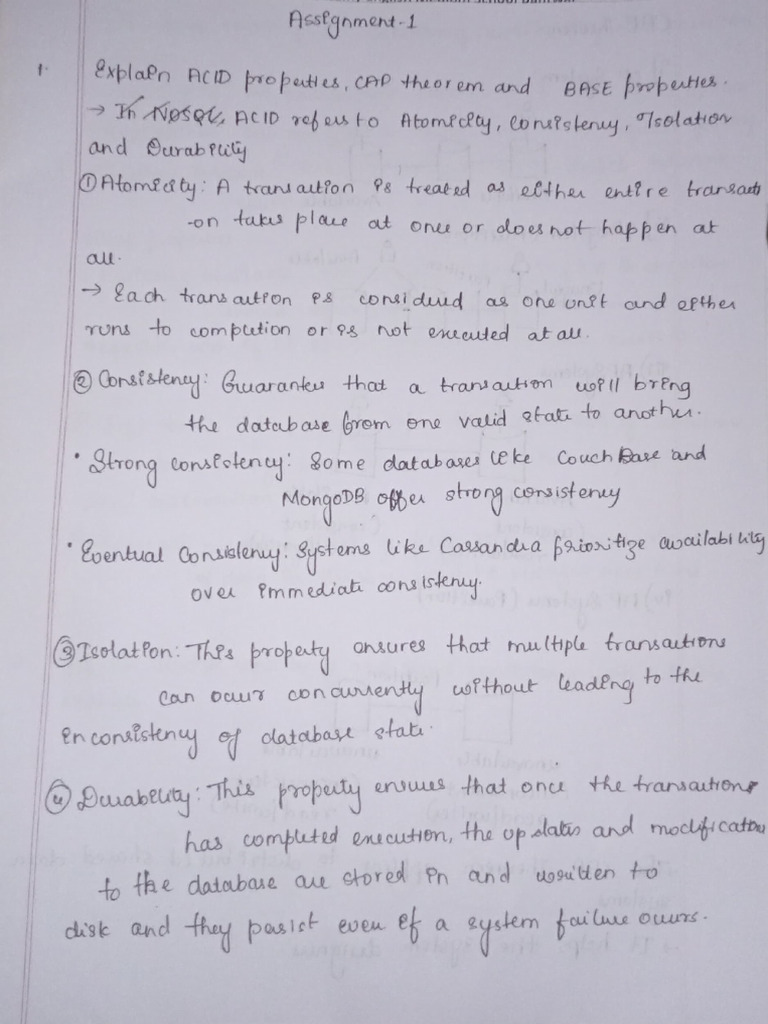 Assignment-1
1. Explain ACID properties, CAP theorem and BASE properties.
→ In NoSQL, ACID refers to Atomicity, Consistency, Isolation
and Durability
① Atomicity: A transaction is treated as either entire transacti
-on takes place at once or does not happen at
all.
→ Each transaction is considered as one unit and either
runs to completion or is not executed at all.
② Consistency: Guarantees that a transaction will bring
the database from one valid state to another.
• Strong consistency: Some databases like CouchBase and
MongoDB offer strong consistency
• Eventual Consistency: Systems like Cassandra prioritize availability
over immediate consistency.
③ Isolation: This property ensures that multiple transactions
can occur concurrently without leading to the
inconsistency of database state.
④ Durability: This property ensures that once the transactions
has completed execution, the updates and modification
to the database are stored in and written to
disk and they persist even if a system failure occurs.